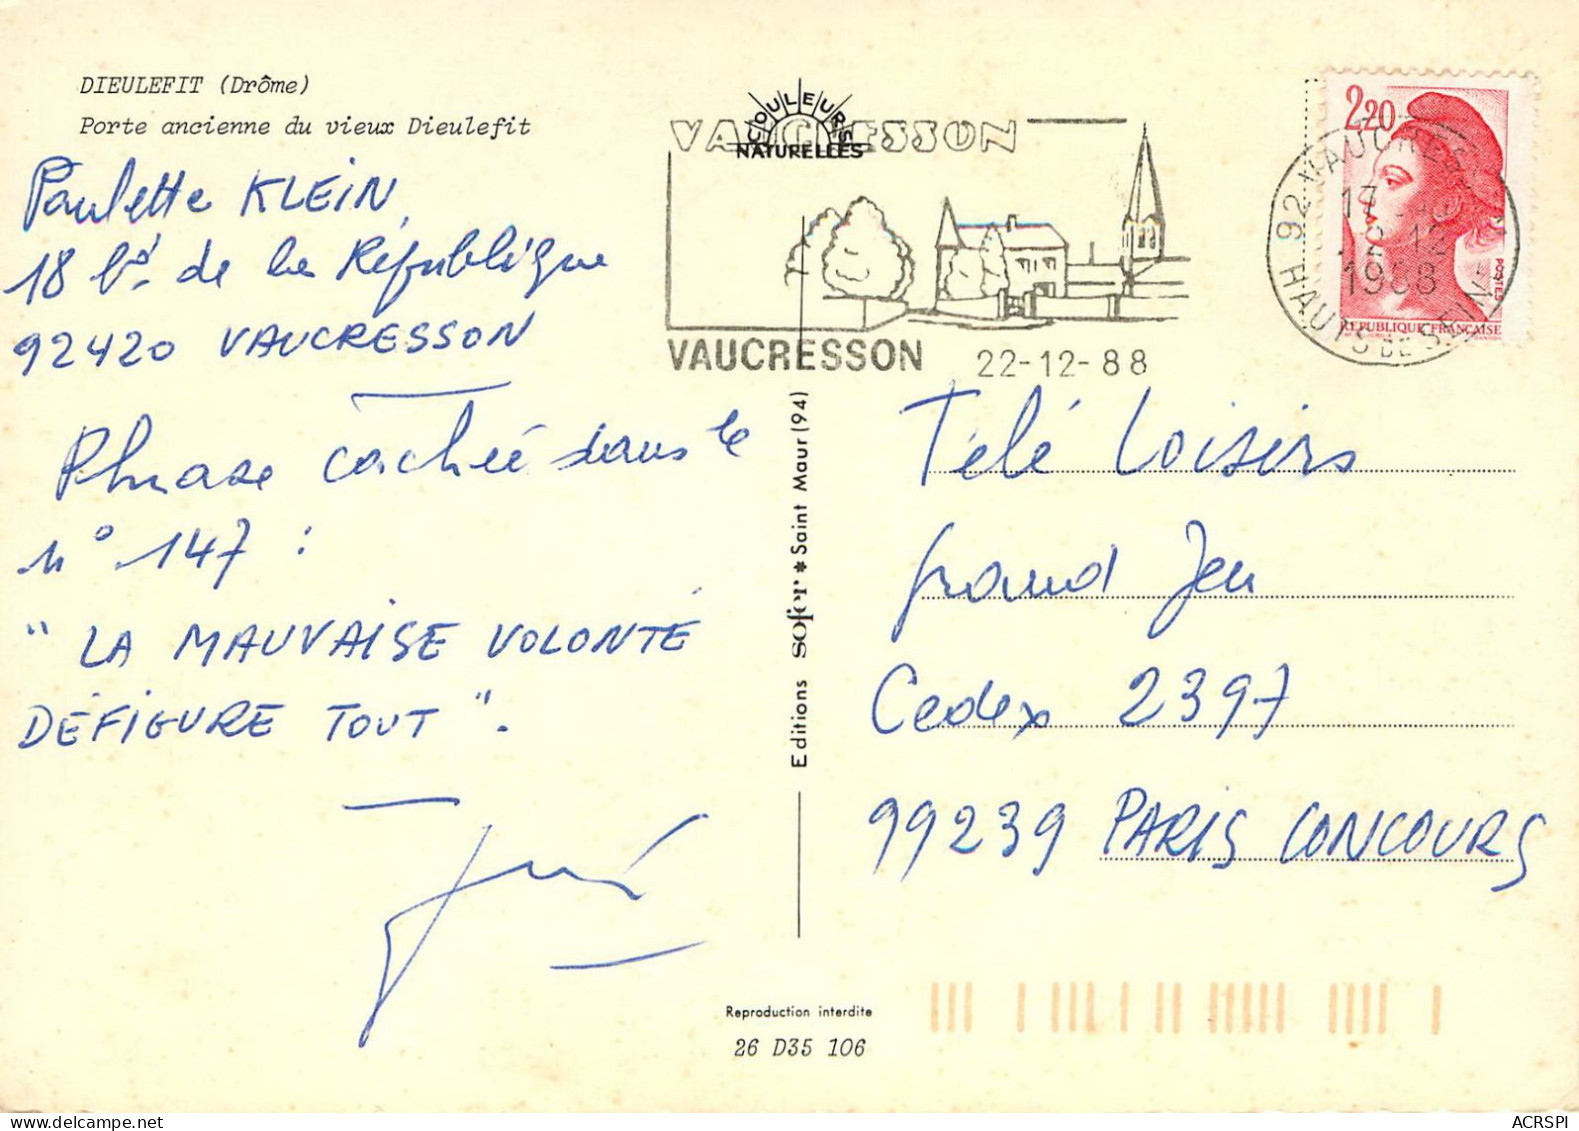 DIEULEFIT (Drôme)
Porte ancienne du vieux Dieulefit
Paulette KLEIN,
18 bd. de la République
92420 VAUCRESSON
Phrase cachée dans le
n° 147 :
" LA MAUVAISE VOLONTÉ
DÉFIGURE TOUT ".
COULEURS
NATURELLES
VAUCRESSON
VAUCRESSON 22-12-88
2,20
POSTES
REPUBLIQUE FRANÇAISE
92 VAUCRESSON
17
1988
HAUTS DE SEINE
Editions sofer * Saint Maur (94)
Télé Loisirs
grand Jeu
Cedex 2397
99239 PARIS CONCOURS
Reproduction interdite
26 D35 106
ACRSPI